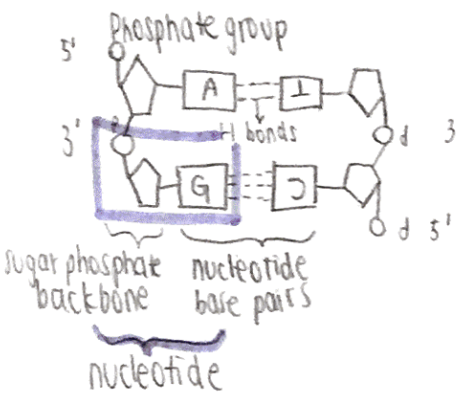 Phosphate group
5'
A T
H bonds
3' P d 3
G C
d 5'
sugar phosphate backbone
nucleotide base pairs
nucleotide